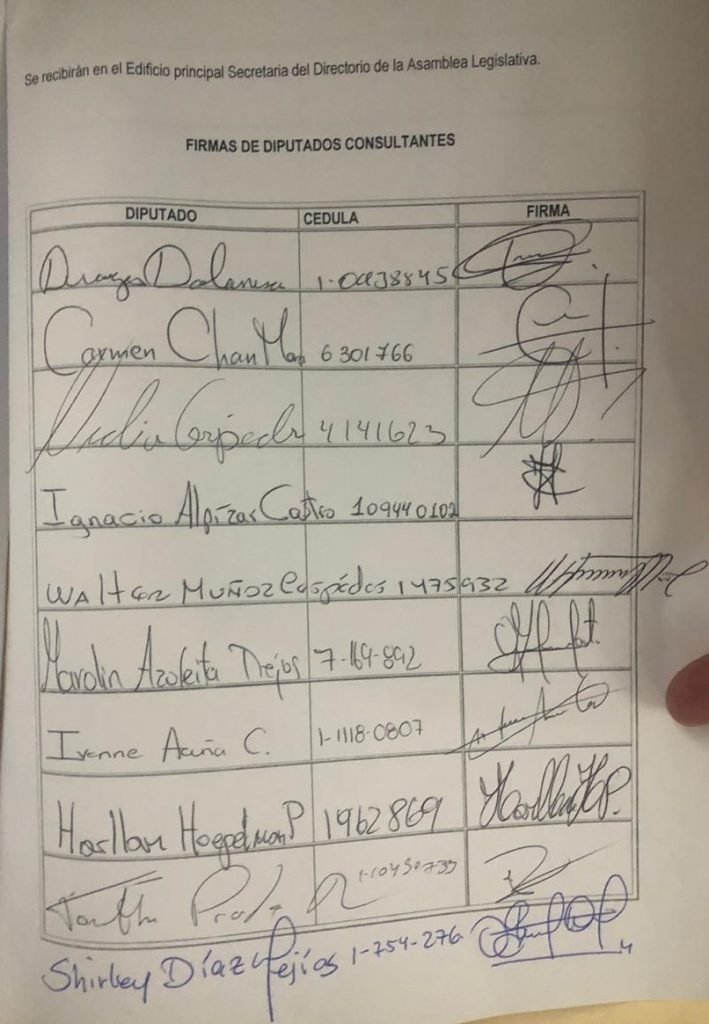 Se recibirán en el Edificio principal Secretaria del Directorio de la Asamblea Legislativa.
FIRMAS DE DIPUTADOS CONSULTANTES
DIPUTADO CEDULA FIRMA
Carmen Chan 6301766
4141623
Ignacio Alpízar Castro 109440102
WALTER MUÑOZ Céspédes 1475932
Marolin Azofeita Trejos 7-169-892
Ivonne Acuña C. 1-1118-0807
Harllan Hoepelman P 1962869
Shirley Díaz Mejíos 1-754-276